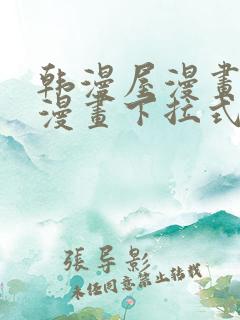 韩漫屋漫畫
漫畫下拉式
張导影
未任同意禁止转载